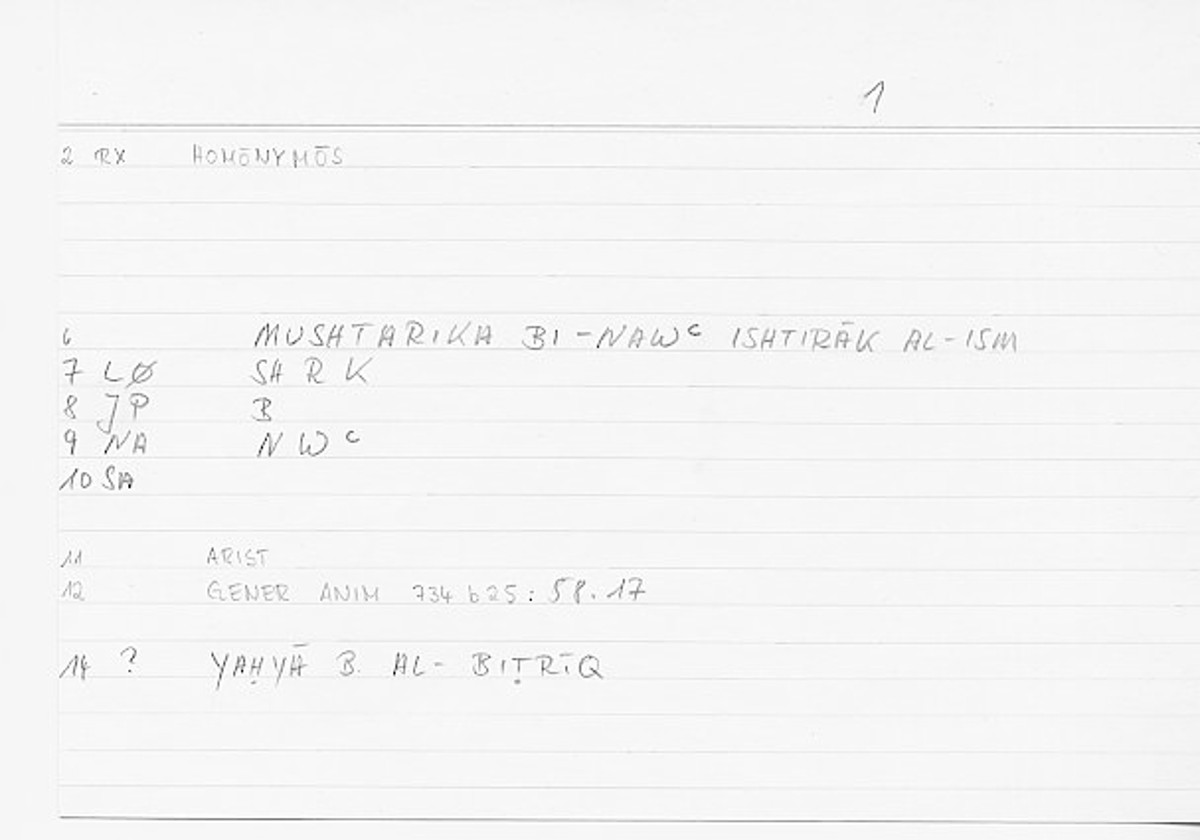 1
2 RX HOMŌNYMŌS
6 MUSHTARIKA BI-NAWᶜ ISHTIRĀK AL-ISM
7 LØ SH R K
8 JP B
9 NA N W ᶜ
10 SA
11 ARIST
12 GENER ANIM 734 b 25 : 58.17
14 ? YAḤYĀ B. AL-BIṬRĪQ